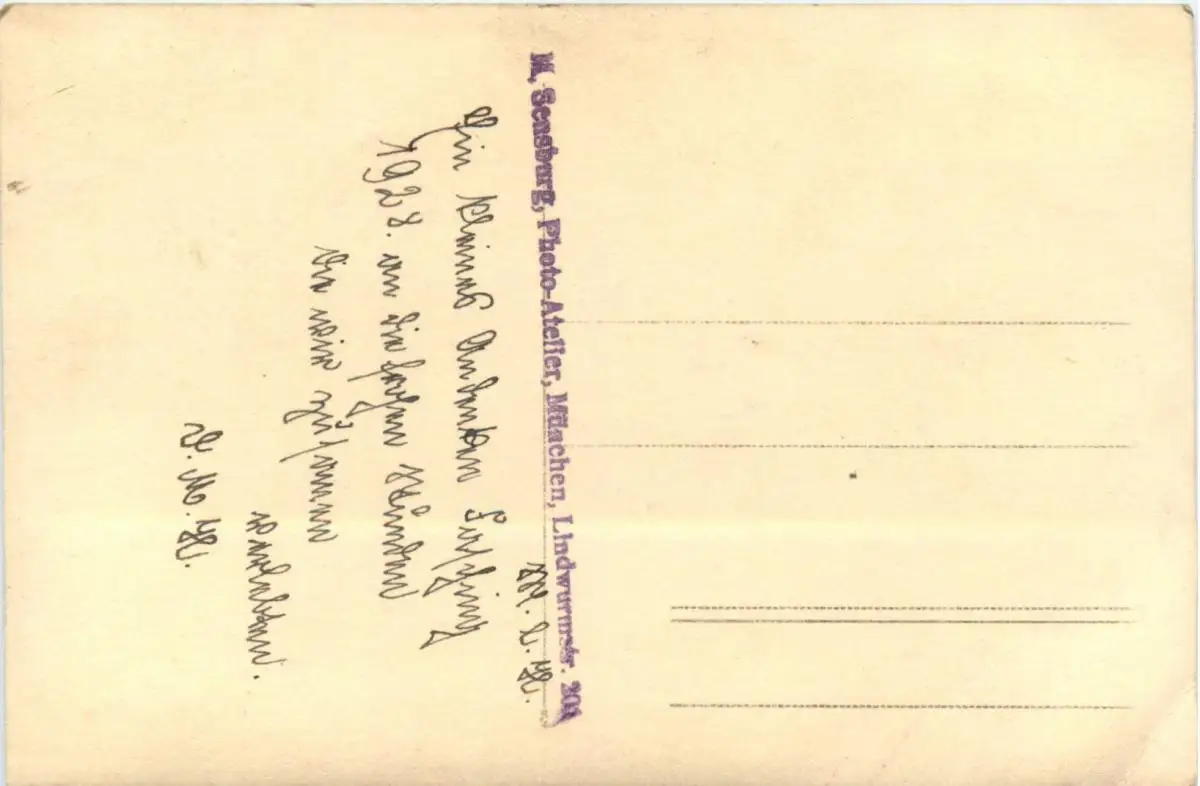 M, Sensburg, Photo-Atelier, München, Lindwurmstr. 201
Ein kleines Andenken Fasching
1928. an die frohen Stunden
die wir zusammen
verlebten.